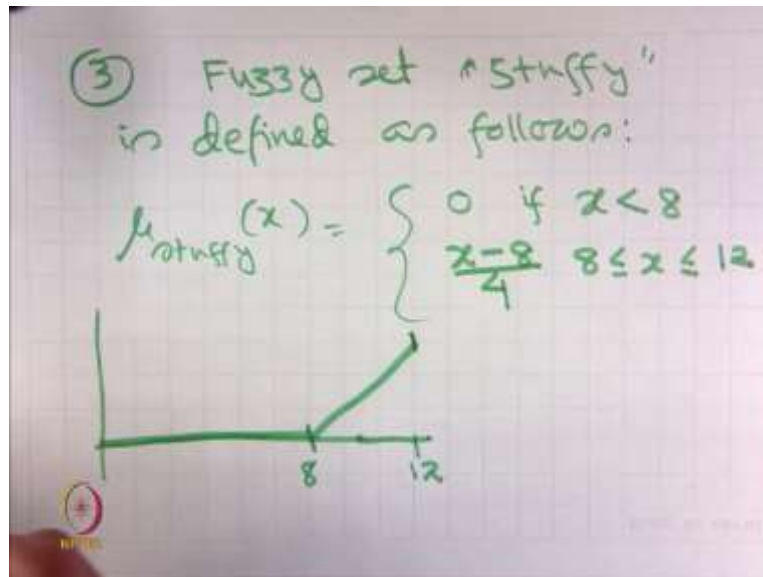 ③ Fuzzy set "Stuffy"
is defined as follows:
μ_stuffy (x) = { 0 if x < 8
x-8/4 8 ≤ x ≤ 12
8 12
NPTEL